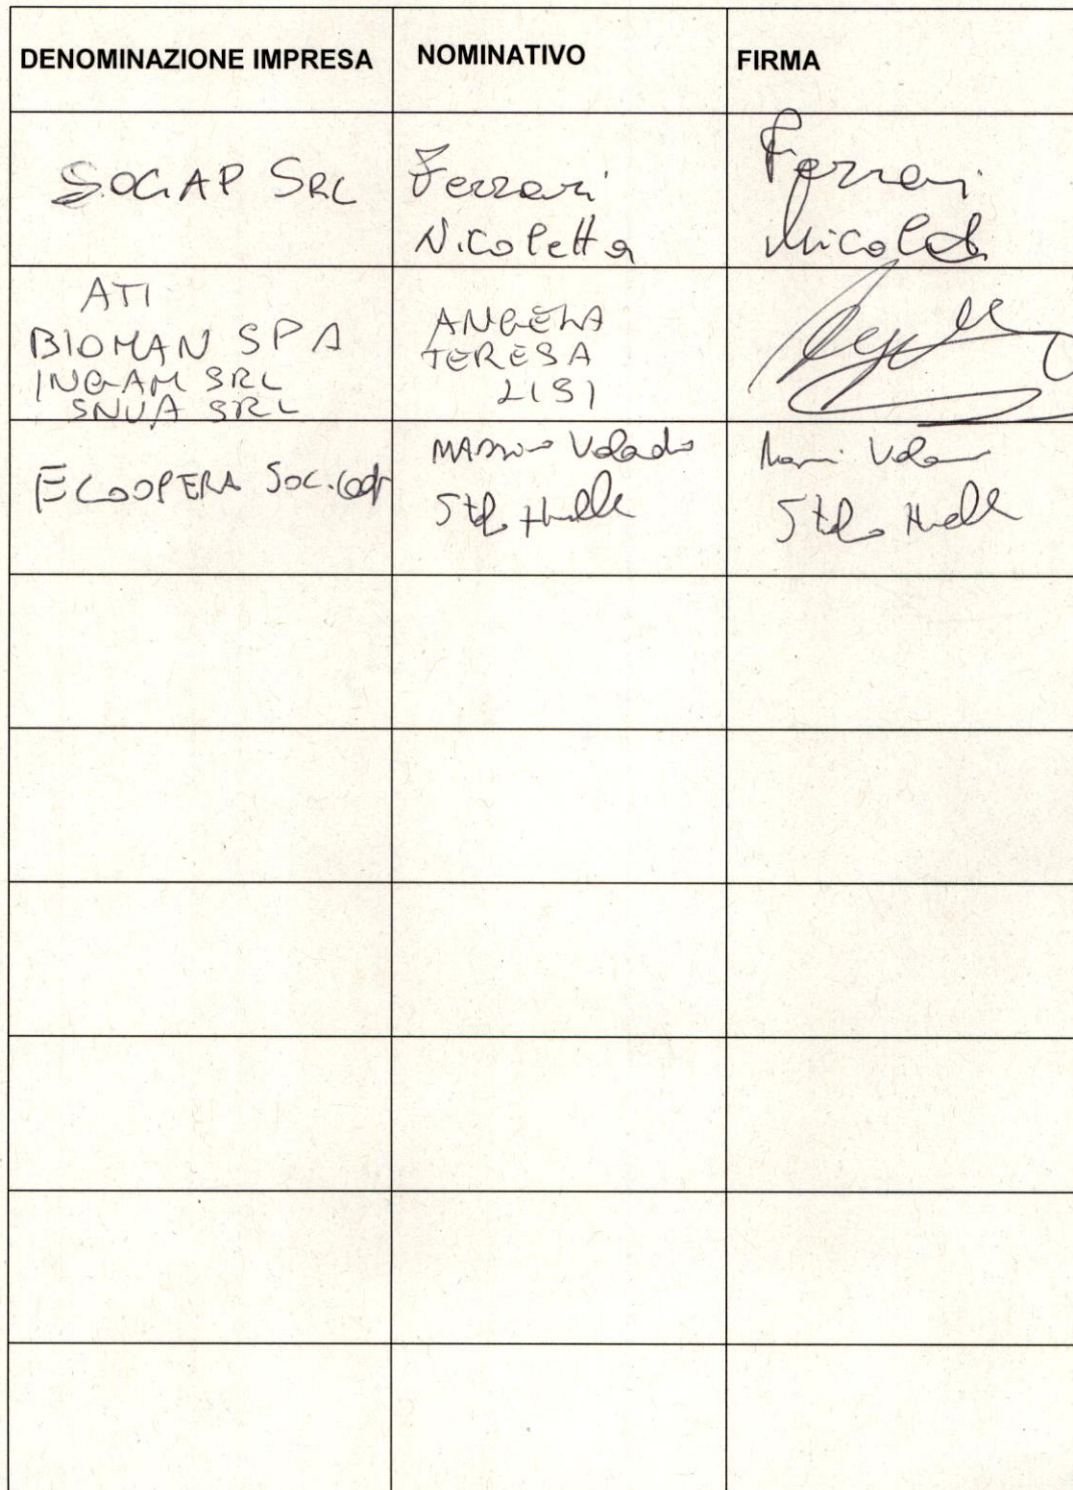 DENOMINAZIONE IMPRESA
NOMINATIVO
FIRMA
SOGAP SRL
Ferrari
Nicoletta
Ferrari
Nicoletta
ATI
BIOMAN SPA
INGAM SRL
SNUA SRL
ANGELA
TERESA
LISI
ECOOPERA SOC. COOP